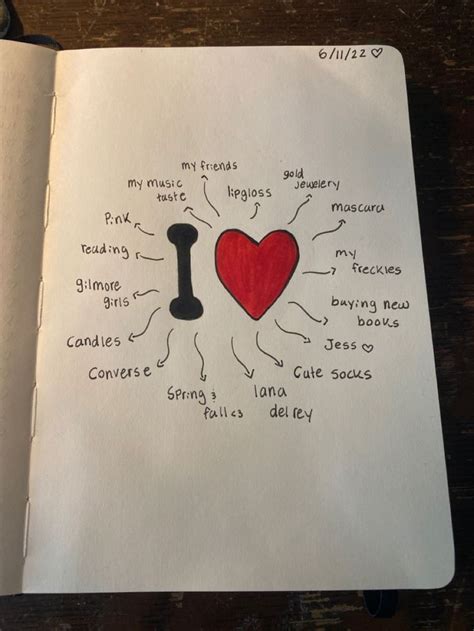 6/11/22 ♡
my friends
my music
taste
lipgloss
gold
jewelery
mascara
Pink
reading
my
freckles
gilmore
girls
buying new
books
Candles
Jess ♡
Converse
Cute socks
Spring &
fall <3
lana
del rey
I ♥